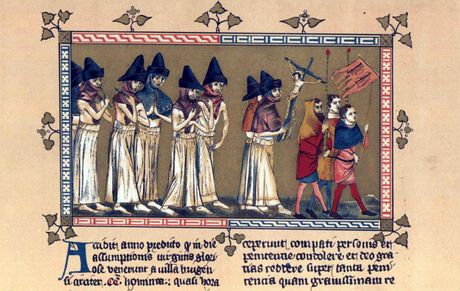 Accidit anno predicto q in die
assumptionis virginis glori
ose venerunt a villa brugen
si circiter CC homines quasi hora
ceperunt compati personis et
penitencie condolere et deo gra
cias reddere super tanta peni
tencia quam grauissimam re